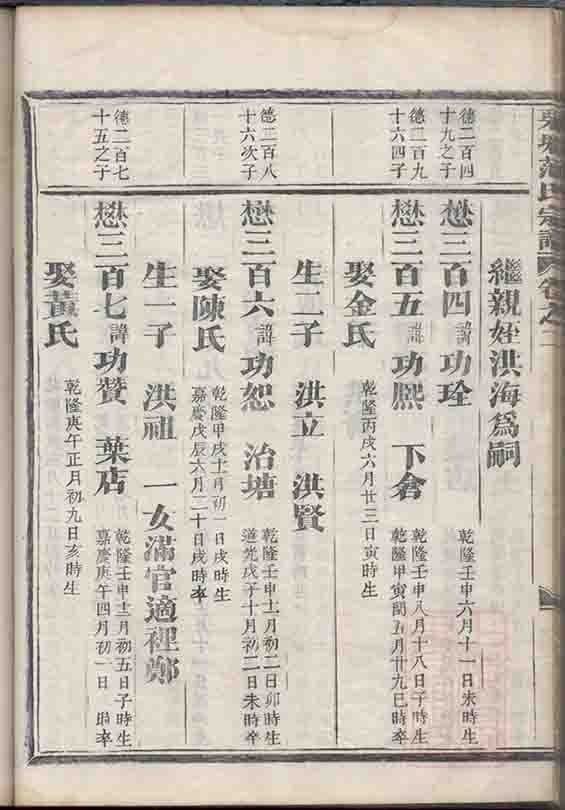 范氏宗譜 卷之二
繼親姪洪海爲嗣
德二百四
十九之子
懋三百四諱功珓
乾隆壬申六月十一日未時生
德二百九
十六四子
懋三百五諱功熙 下倉
乾隆壬申八月十八日子時生
乾隆甲寅閏五月廿九巳時卒
娶金氏
乾隆丙戌六月廿三日寅時生
生二子 洪立 洪賢
德二百八
十六次子
懋三百六諱功恕 治塘
乾隆壬申十二月初二日卯時生
道光戊子十月初二日未時卒
娶陳氏
乾隆甲戌十月初一日戌時生
嘉慶戊辰六月二十日戌時卒
生一子 洪祖 一女滿官適裡鄭
德二百七
十五之子
懋三百七諱功贊 葉店
乾隆壬申十二月初五日子時生
嘉慶庚午四月初一日 時卒
娶黃氏
乾隆庚午正月初九日亥時生